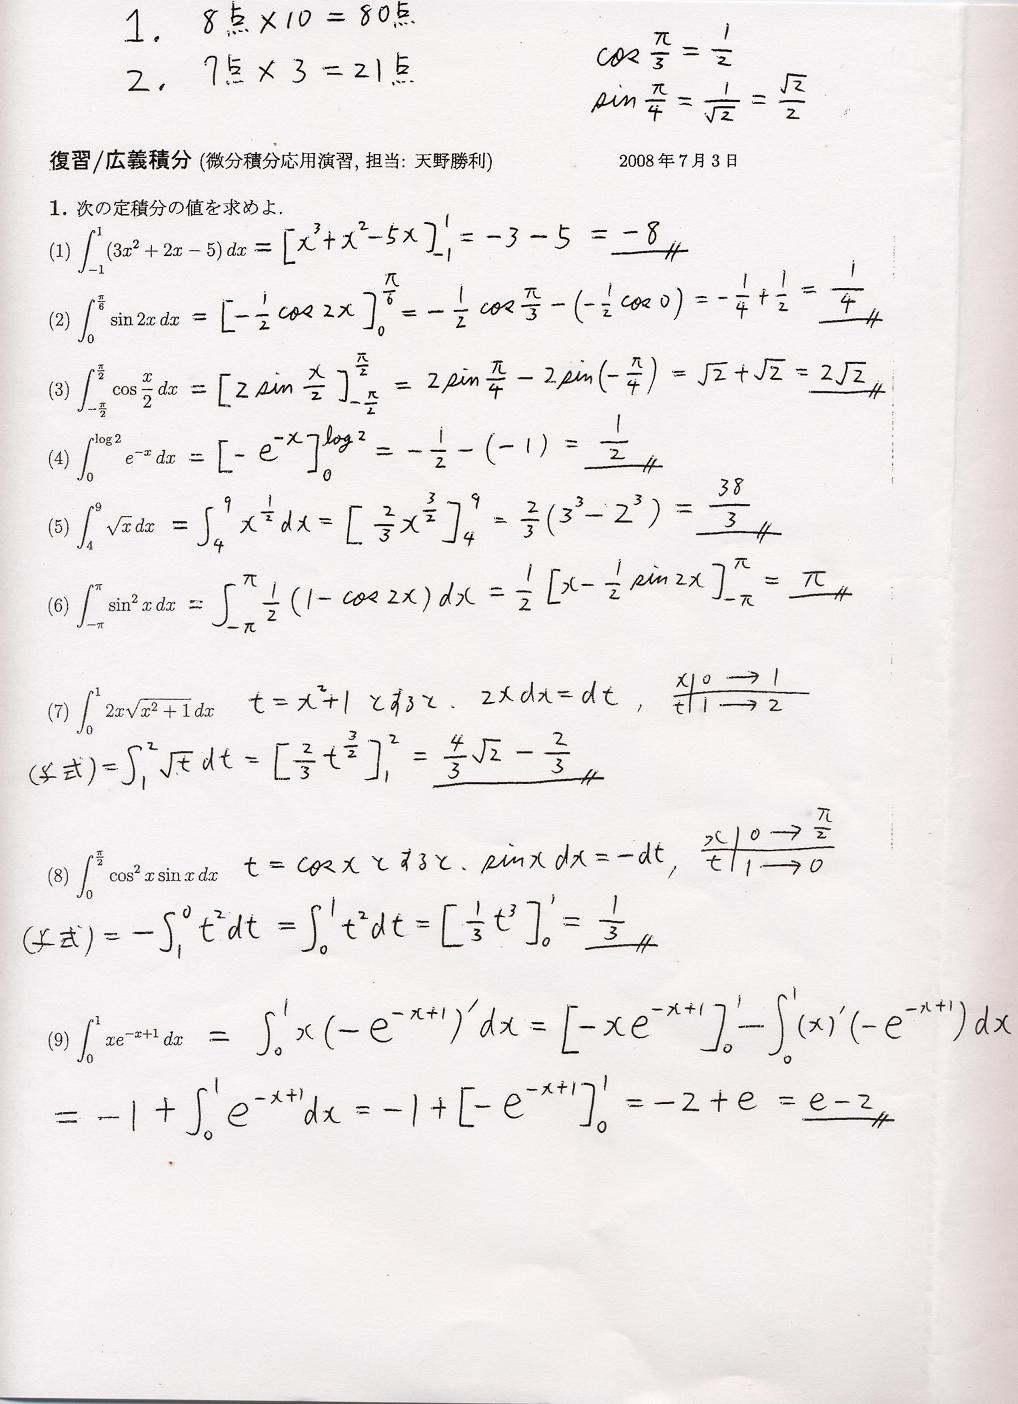 1. 8点×10=80点
2. 7点×3=21点
cos π/3 = 1/2
sin π/4 = 1/√2 = √2/2
復習/広義積分 (微分積分応用演習, 担当: 天野勝利) 2008年7月3日
1. 次の定積分の値を求めよ.
(1) ∫_{-1}^{1} (3x² + 2x − 5) dx = [x³+x²−5x]_{-1}^{1} = −3−5 = −8
(2) ∫_{0}^{π/6} sin 2x dx = [−1/2 cos 2x]_{0}^{π/6} = −1/2 cos π/3 − (−1/2 cos 0) = −1/4 + 1/2 = 1/4
(3) ∫_{-π/2}^{π/2} cos x/2 dx = [2 sin x/2]_{-π/2}^{π/2} = 2 sin π/4 − 2 sin(−π/4) = √2+√2 = 2√2
(4) ∫_{0}^{log 2} e^{-x} dx = [−e^{-x}]_{0}^{log 2} = −1/2 − (−1) = 1/2
(5) ∫_{4}^{9} √x dx = ∫_{4}^{9} x^{1/2} dx = [2/3 x^{3/2}]_{4}^{9} = 2/3 (3³ − 2³) = 38/3
(6) ∫_{-π}^{π} sin² x dx = ∫_{-π}^{π} 1/2 (1−cos 2x) dx = 1/2 [x − 1/2 sin 2x]_{-π}^{π} = π
(7) ∫_{0}^{1} 2x√(x² + 1) dx t = x²+1 とすると. 2x dx = dt, x|0 → 1
t|1 → 2
(与式) = ∫_{1}^{2} √t dt = [2/3 t^{3/2}]_{1}^{2} = 4/3 √2 − 2/3
(8) ∫_{0}^{π/2} cos² x sin x dx t = cos x とすると. sin x dx = −dt, x|0 → π/2
t|1 → 0
(与式) = −∫_{1}^{0} t² dt = ∫_{0}^{1} t² dt = [1/3 t³]_{0}^{1} = 1/3
(9) ∫_{0}^{1} xe^{-x+1} dx = ∫_{0}^{1} x(−e^{-x+1})′ dx = [−xe^{-x+1}]_{0}^{1} − ∫_{0}^{1} (x)′(−e^{-x+1}) dx
= −1 + ∫_{0}^{1} e^{-x+1} dx = −1 + [−e^{-x+1}]_{0}^{1} = −2+e = e−2